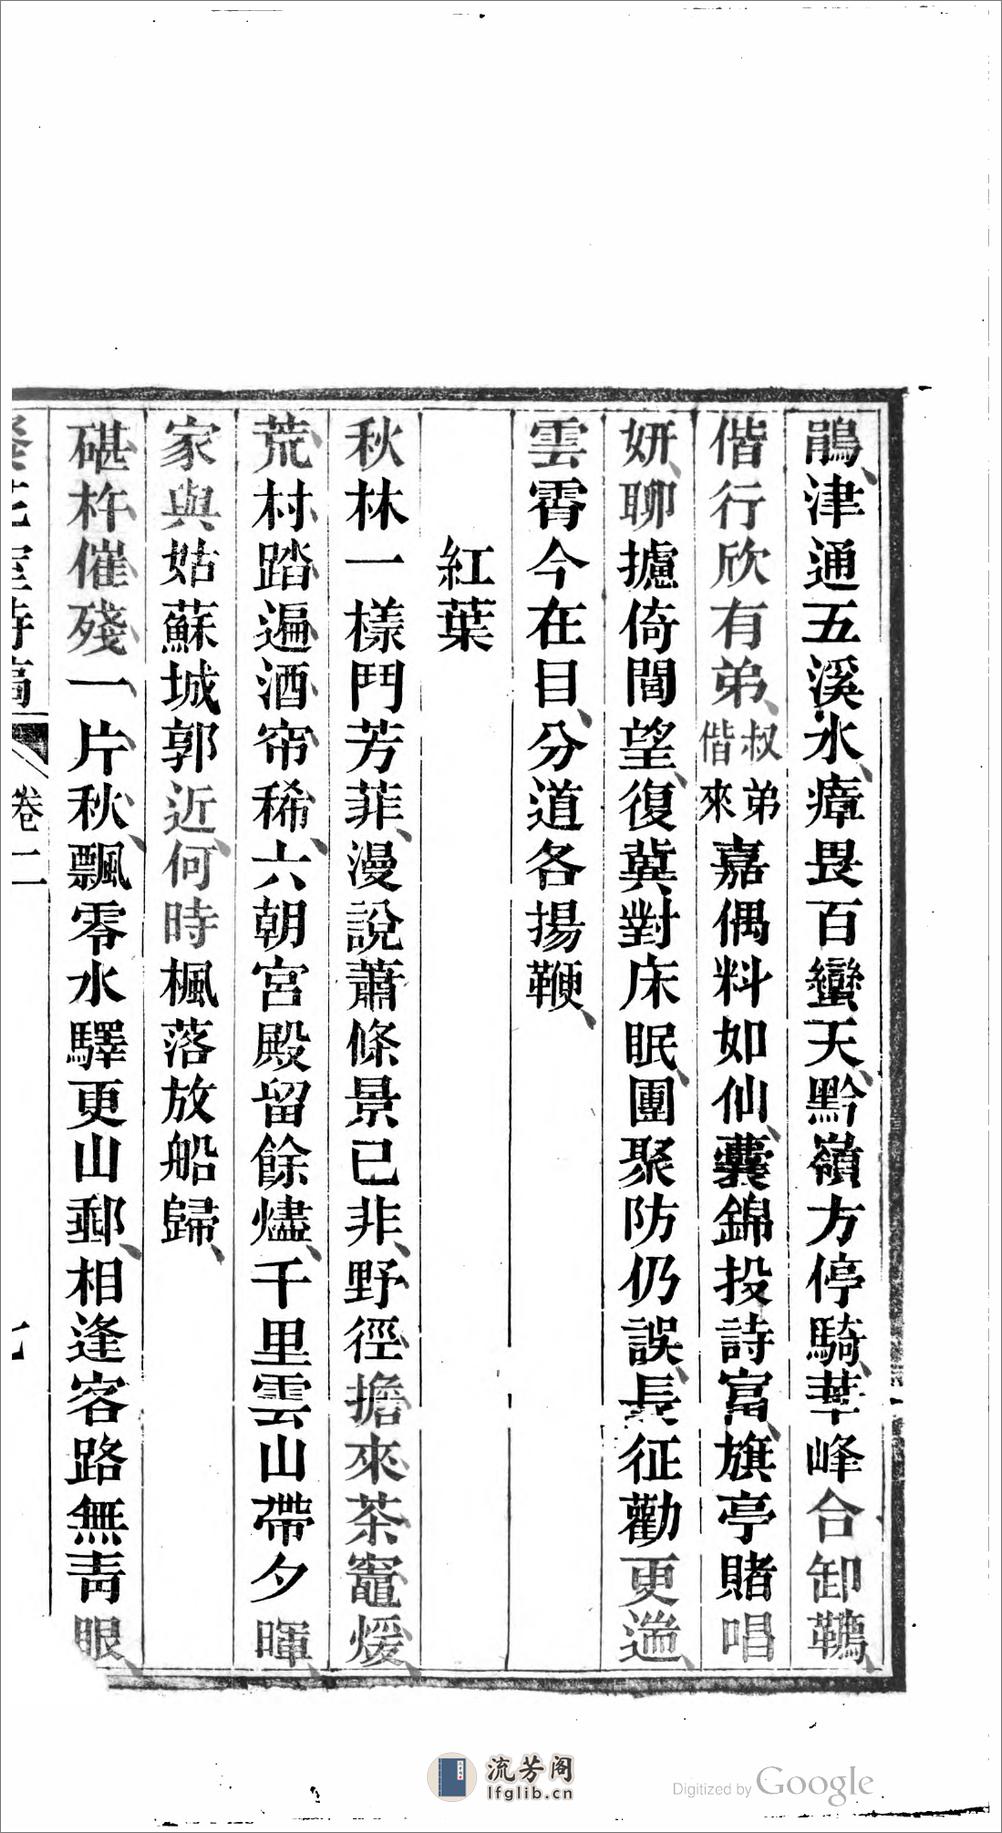 鵑、津通五溪水、瘴畏百蠻天、黔嶺方停騎、華峰合卸韉、
偕行欣有弟、叔弟偕來嘉偶料如仙、囊錦投詩富、旗亭賭唱
妍、聊攄倚閭望、復冀對床眠、團聚防仍誤、長征勸更遄、
雲霄今在目、分道各揚鞭、
紅葉
秋林一樣鬥芳菲、漫說蕭條景已非、野徑擔來茶竈煖、
荒村踏遍酒帘稀、六朝宮殿留餘燼、千里雲山帶夕暉、
家與姑蘇城郭近、何時楓落放船歸、
碪杵催殘一片秋、飄零水驛更山郵、相逢客路無靑眼、
花室詩稿 卷二 七
流芳阁
lfglib.cn
Digitized by Google